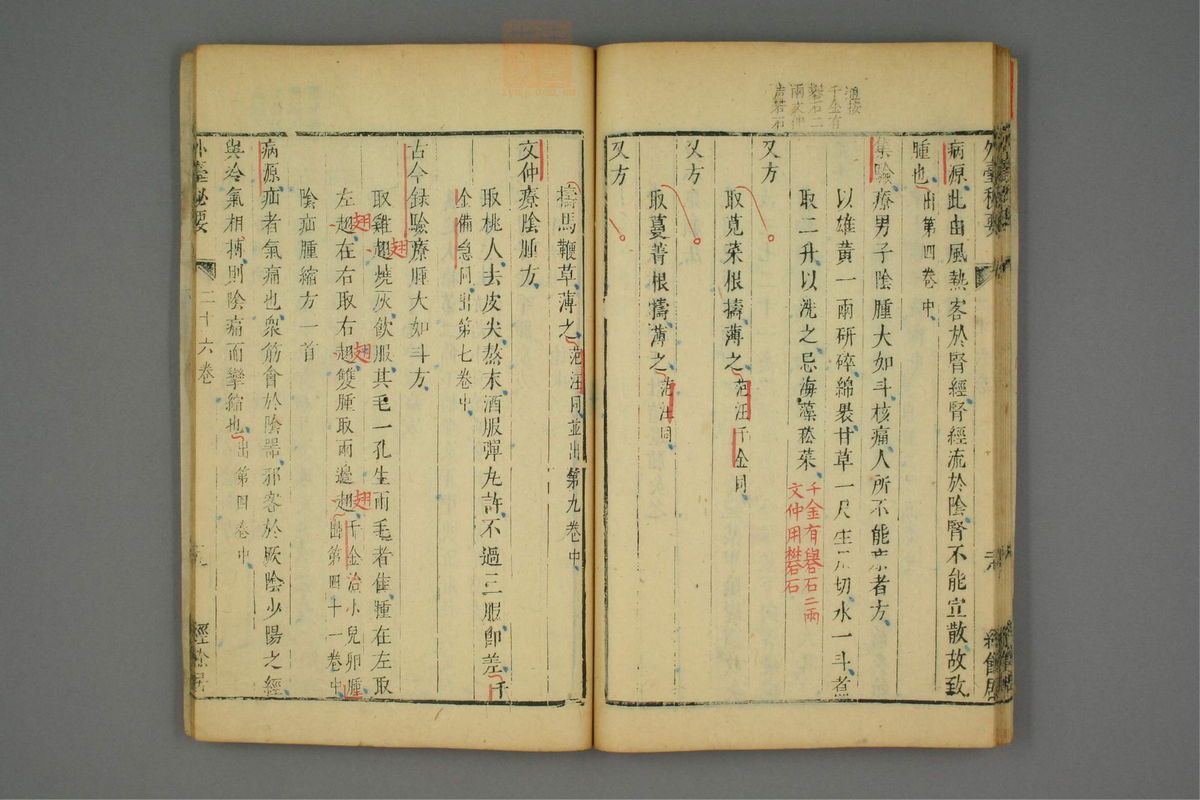 外臺秘要
經餘居
病源此由風熱客於腎經腎經流於陰腎不能宣散故致
腫也出第四卷中
集驗療男子陰腫大如斗核痛人所不能療者方
以雄黃一兩研碎綿裹甘草一尺生用切水一斗煮
取二升以洗之忌海藻菘菜
千金有礜石二兩
文仲用礬石
又方
取莧菜根擣薄之范汪千金同
又方
取蔓菁根擣薄之范汪同
又方
擣馬鞭草薄之范汪同並出第九卷中
文仲療陰腫方
取桃人去皮尖熬末酒服彈丸許不過三服即差千
金備急同出第七卷中
古今録驗療腫大如斗方
取雞翅燒灰飲服其毛一孔生兩毛者佳腫在左取
左翅在右取右翅雙腫取兩邊翅千金治小兒卵腫
出第四十一卷中
陰疝腫縮方一首
病源疝者氣痛也衆筋會於陰器邪客於厥陰少陽之經
與冷氣相搏則陰痛而攣縮也出第四卷中
外臺秘要
二十六卷
經餘居